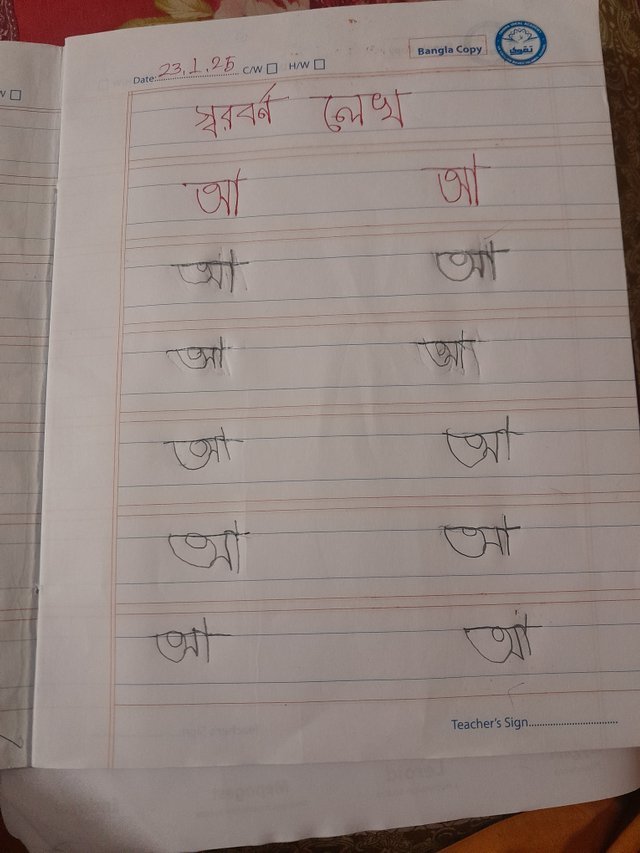 Bangla Copy
Date: 23.1.25 C/W H/W
স্বরবর্ন লেখ
আ আ
আ আ
আ আ
আ আ
আ আ
আ আ
Teacher's Sign